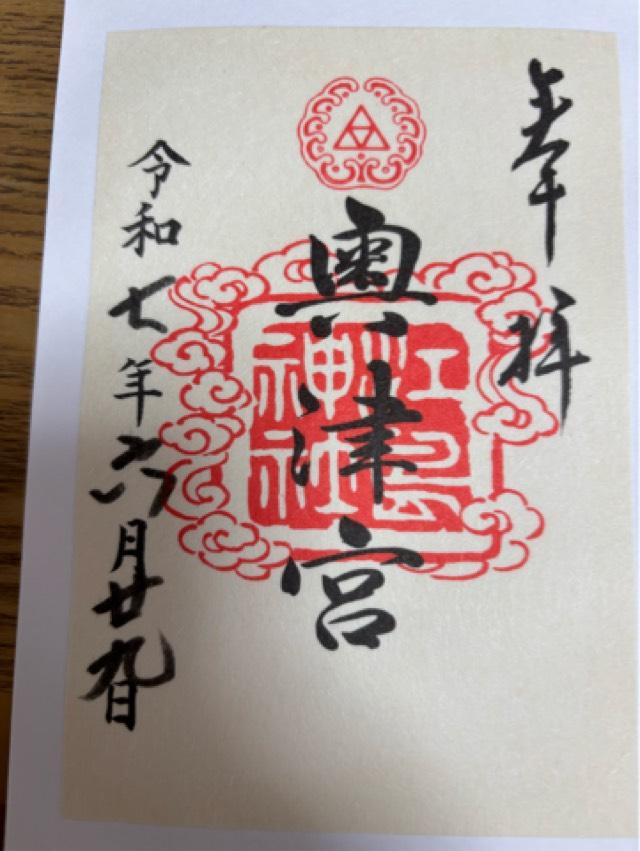 奉拝
奥津宮
江島
神社
令和七年六月廿九日